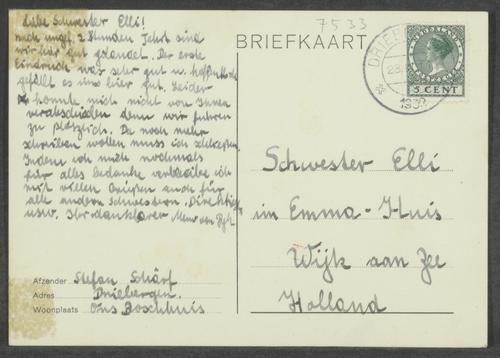 Liebe Schwester Elli!
Nach ungef. 2 Stunden Fahrt sind
wir hier gut gelandet. Der erste
Eindruck war sehr gut u. hoffentlich
gefällt es uns hier gut. Leider
konnte mich nicht von Ihnen
verabschieden denn wir fuhren
zu plötzlich. Da noch mehr
schreiben wollen muss ich schliessen.
Indem ich mich nochmals
für alles bedanke verbleibe ich
mit vielen Grüßen auch für
alle andern Schwestern, Direktion
usw. Ihr dankbarer
Afzender Stefan Schärf
Adres Driebergen.
Woonplaats Ons Boschhuis
7533
BRIEFKAART
DRIEB
1939
5 CENT
Schwester Elli
im Emma-Huis
Wijk aan Zee
Holland